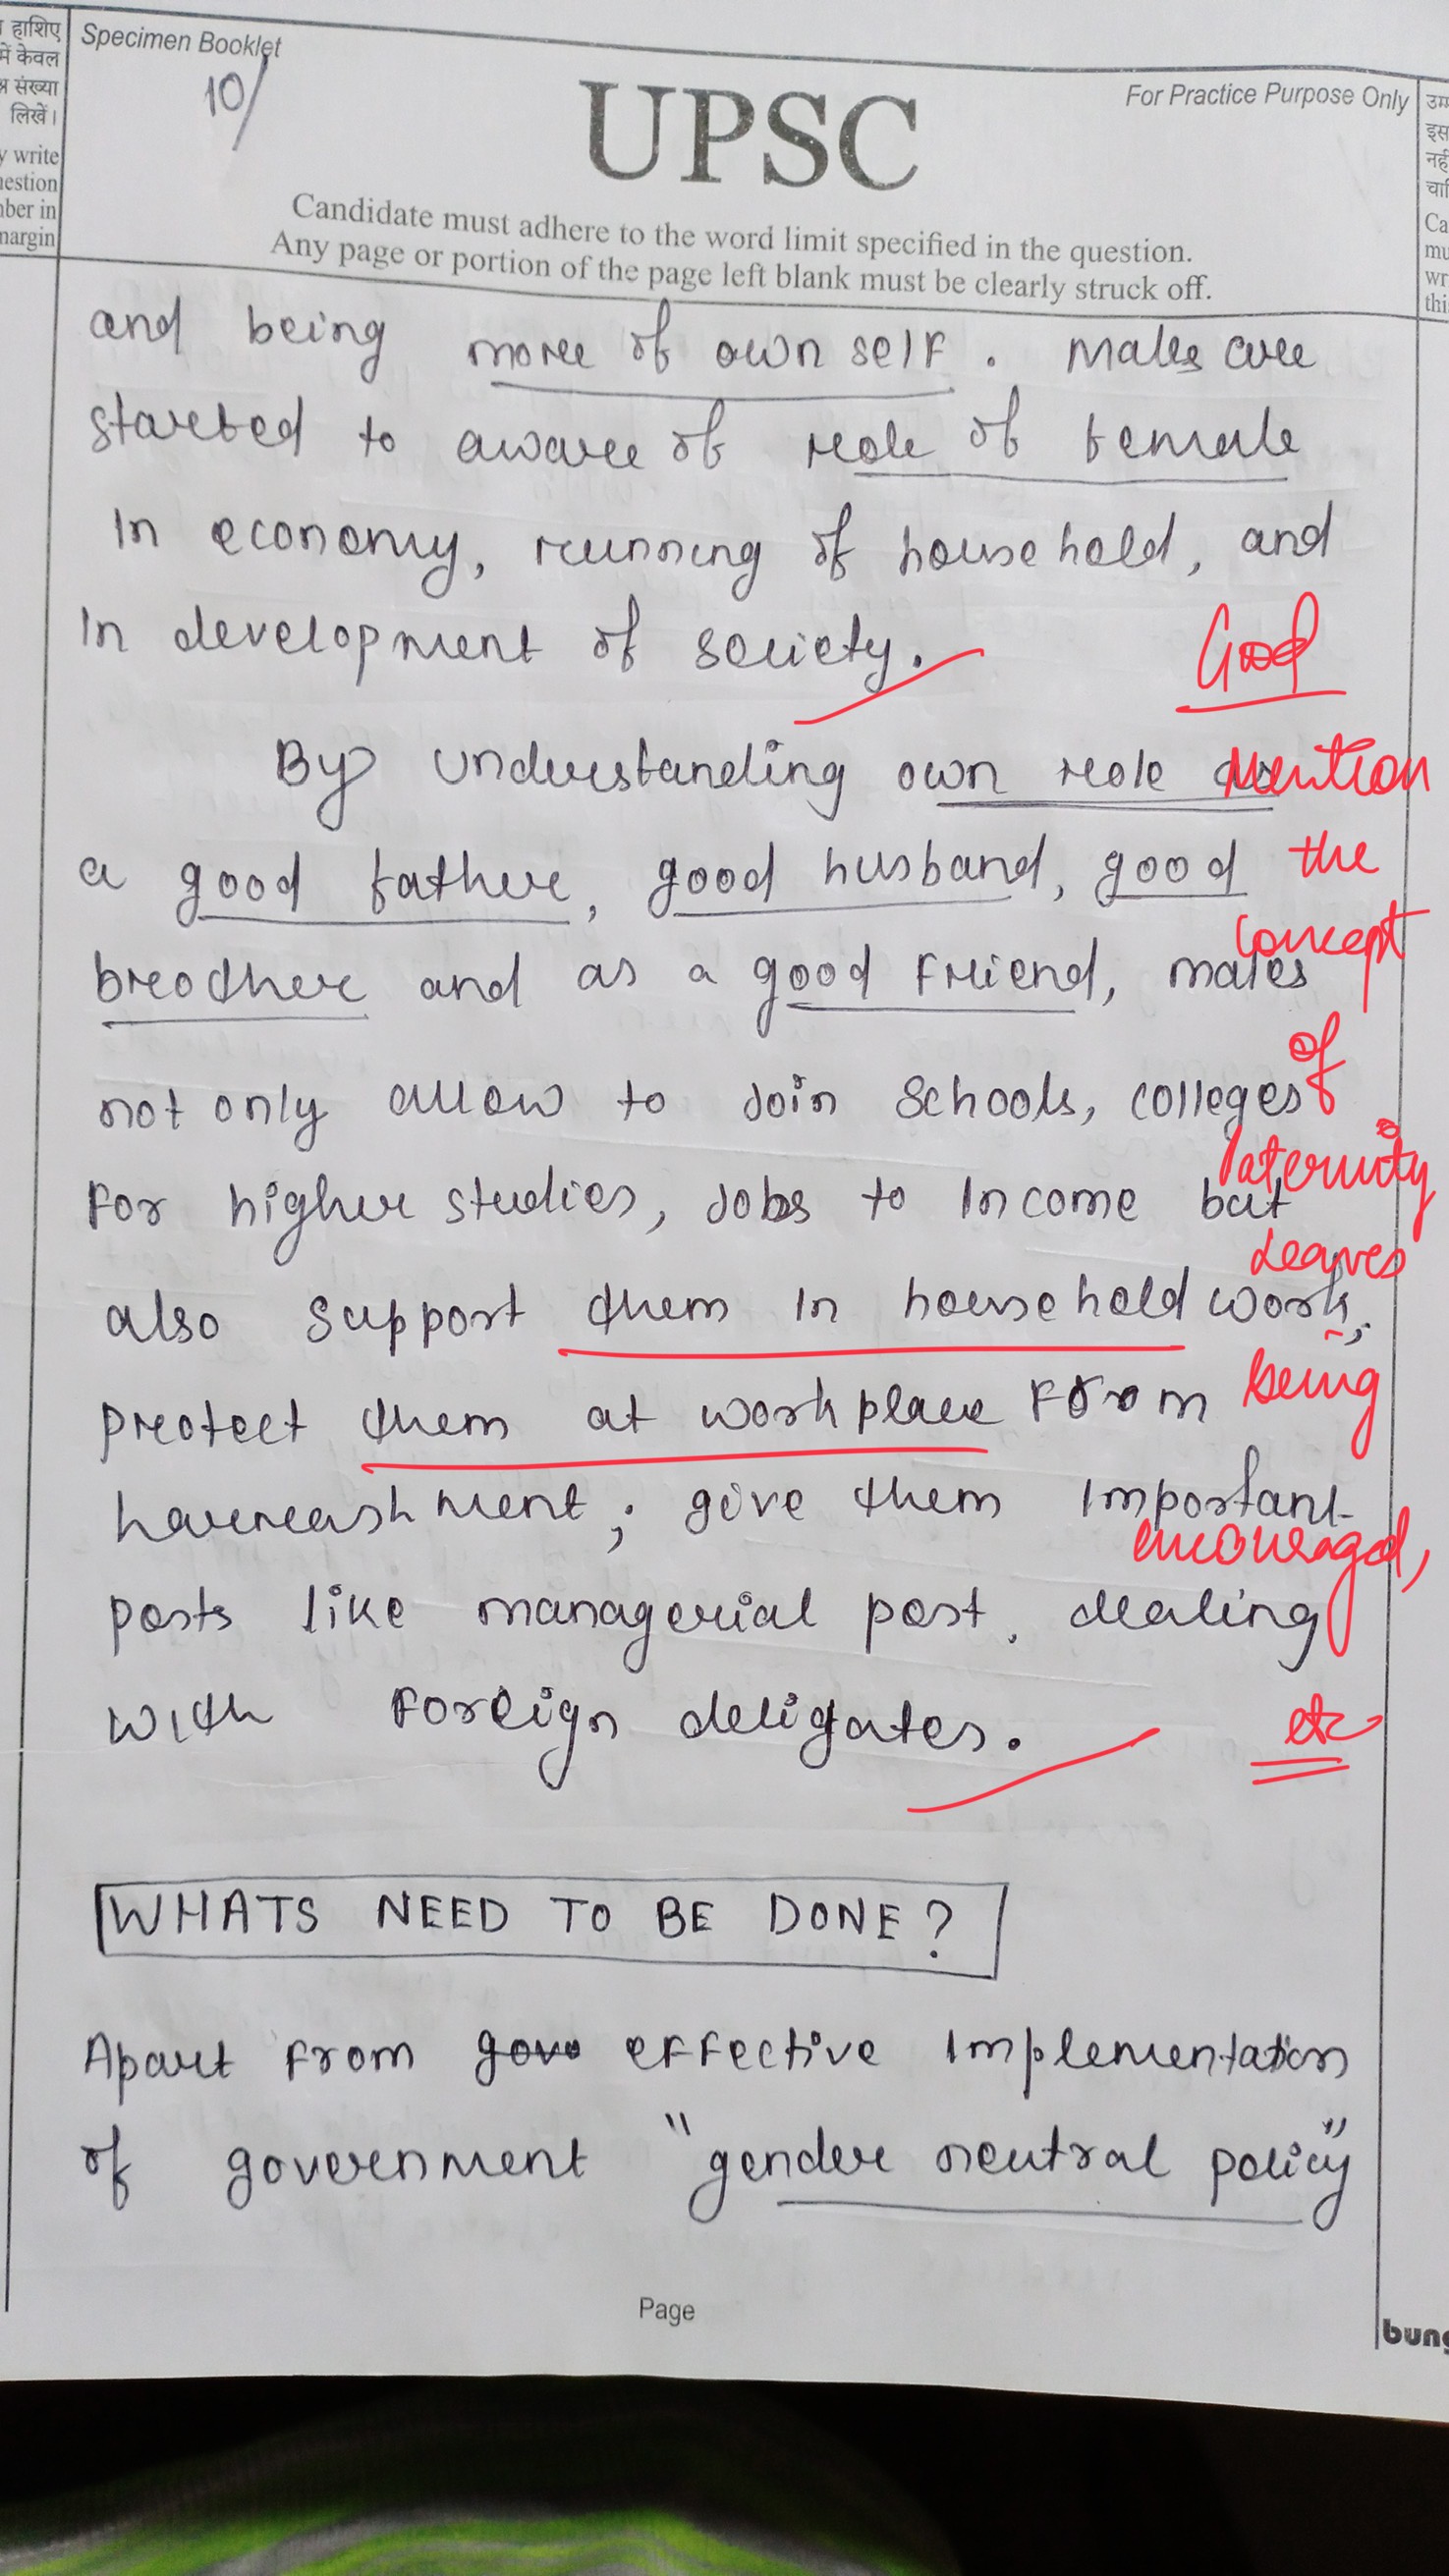 हाशिए
में केवल
संख्या
लिखें।
write
margin
Specimen Booklet
10/
UPSC
For Practice Purpose Only
Candidate must adhere to the word limit specified in the question.
Any page or portion of the page left blank must be clearly struck off.
and being more of own self. Males are
started to aware of role of female
In economy, running of household, and
In development of society.
Good
By understanding own role as
a good father, good husband, good
brother and as a good friend, males
not only allow to Join schools, colleges
for higher studies, Jobs to Income but
also support them in household work,
protect them at workplace from
harreashment; give them important
posts like managerial post, dealing
with foreign deligates.
Mention
the
concept
of
Paternity
Leaves
being
encouraged,
etc
WHATS NEED TO BE DONE?
Apart from gove effective Implementation
of government "gender neutral policy"
Page
bung